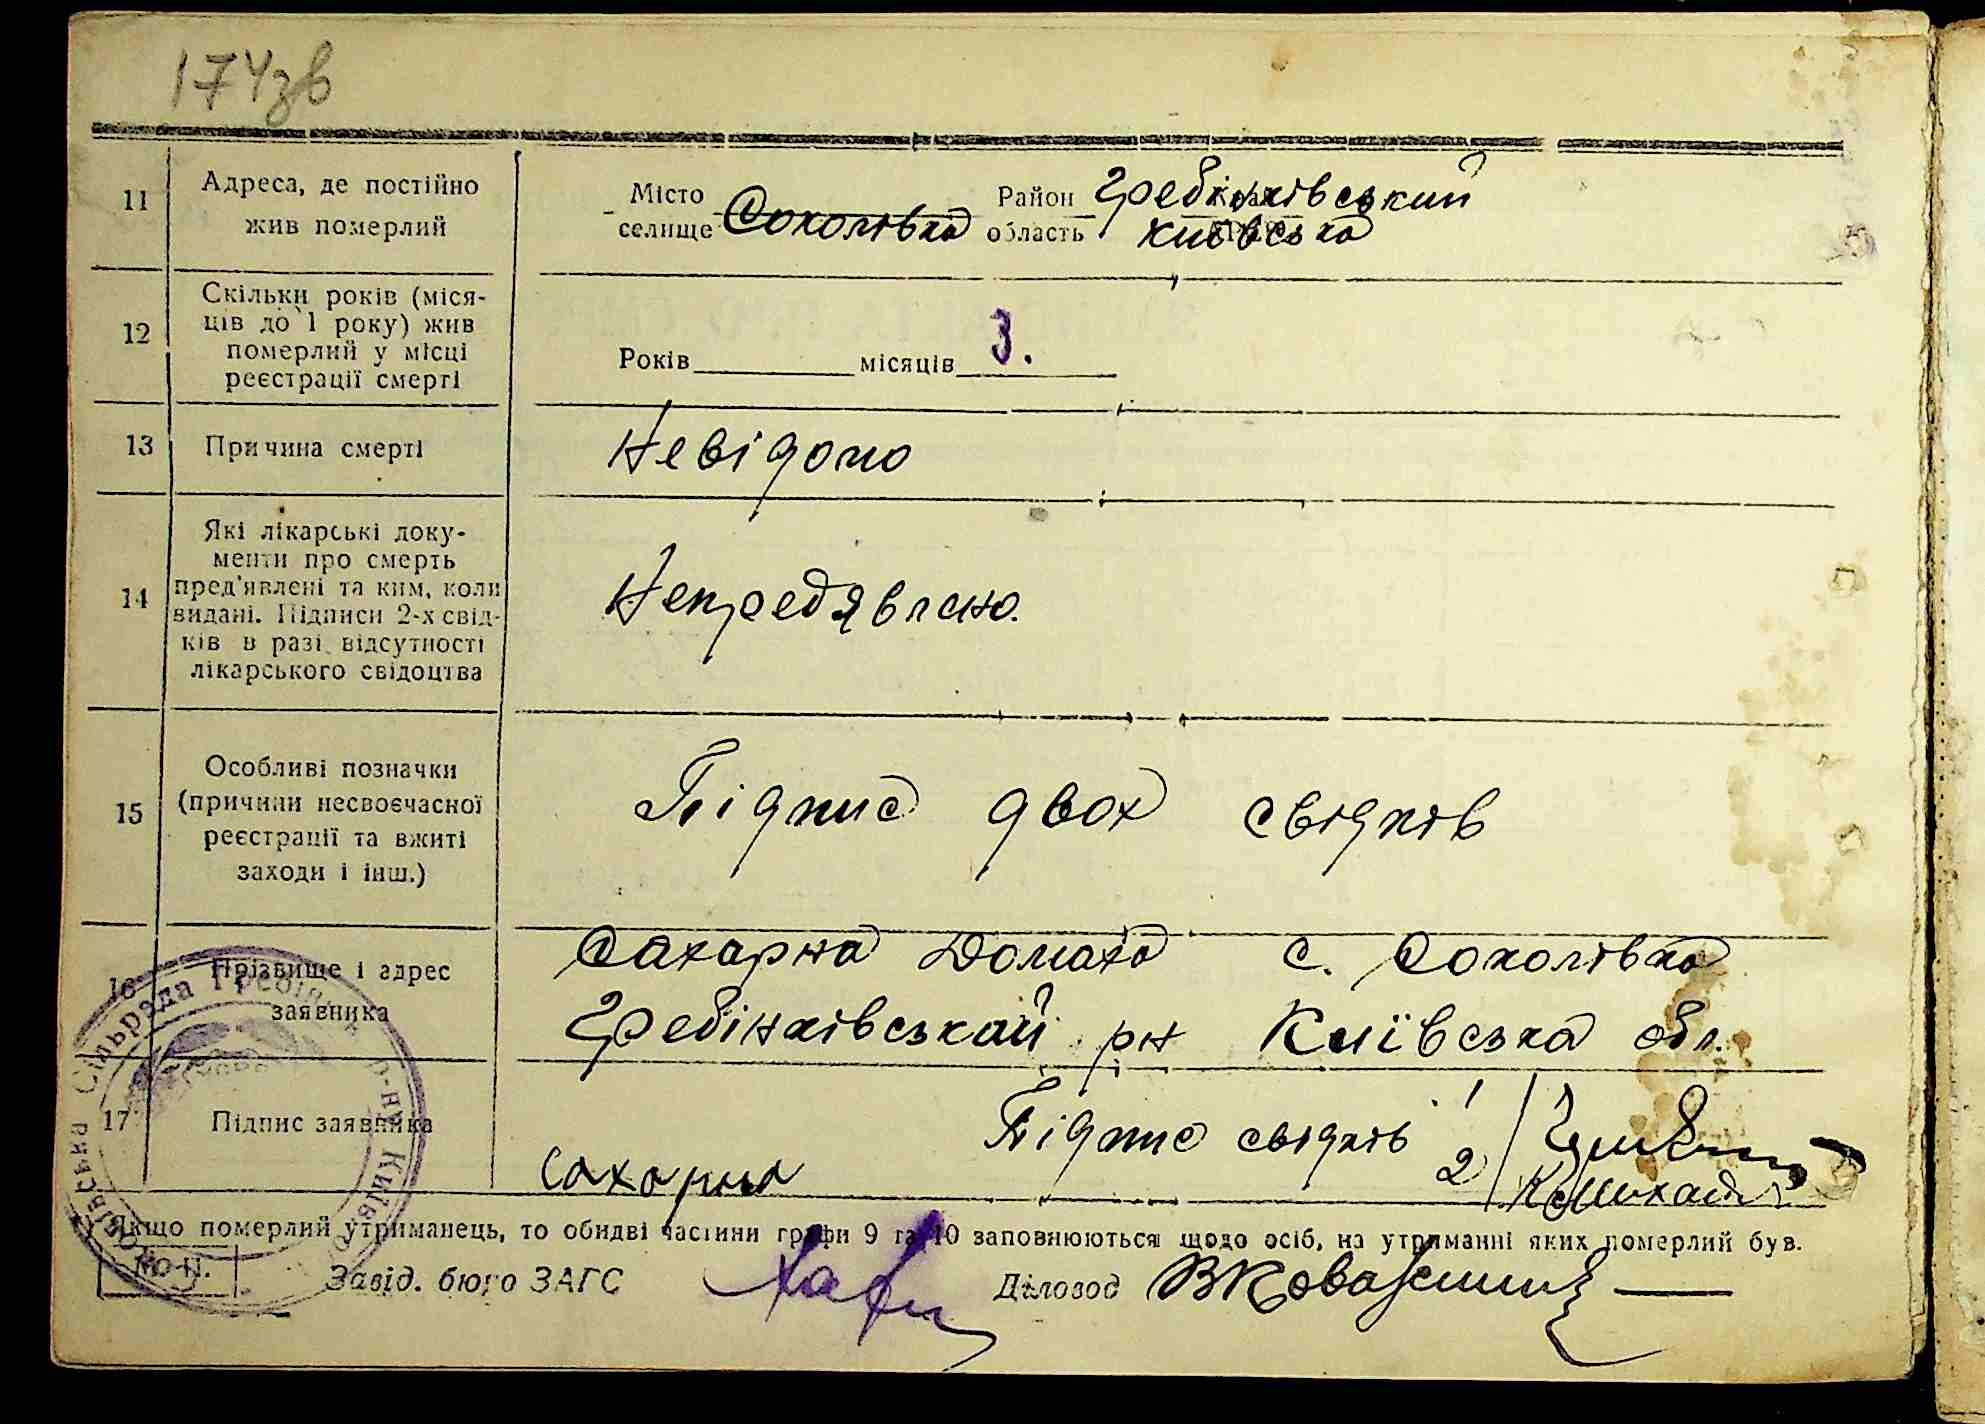 174зв
11 Адреса, де постійно
жив померлий
Місто
селище Соколівка
Район Гребінківський
область Київська
12 Скільки років (міся-
ців до 1 року) жив
померлий у місці
реєстрації смерті
Років місяців 3.
13 Причина смерті
Невідомо
14 Які лікарські доку-
менти про смерть
пред'явлені та ким, коли
видані. Підписи 2-х свід-
ків в разі відсутності
лікарського свідоцтва
Непредявлено.
15 Особливі позначки
(причини несвоєчасної
реєстрації та вжиті
заходи і інш.)
Підпис двох свідків
16 Прізвище і адрес
заявника
Сахарна Домаха с. Соколівка
Гребінківський рн Київська обл.
17 Підпис заявника
Сахарна
Підпис свідків 1
2
Якщо померлий утриманець, то обидві частини графи 9 та 10 заповнюються щодо осіб, на утриманні яких померлий був.
Завід. бюро ЗАГС
Діловод
Сільрада